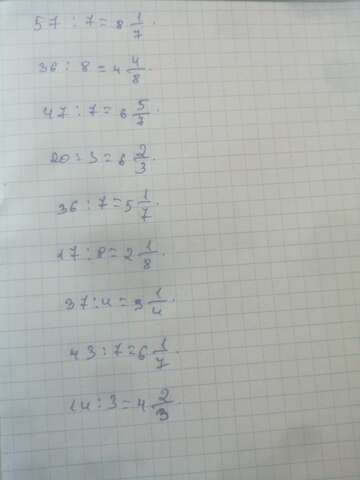 57 : 7 = 8 1/7.
36 : 8 = 4 4/8.
47 : 7 = 6 5/7
20 : 3 = 6 2/3.
36 : 7 = 5 1/7.
17 : 8 = 2 1/8.
37 : 4 = 9 1/4.
43 : 7 = 6 1/7.
14 : 3 = 4 2/3.